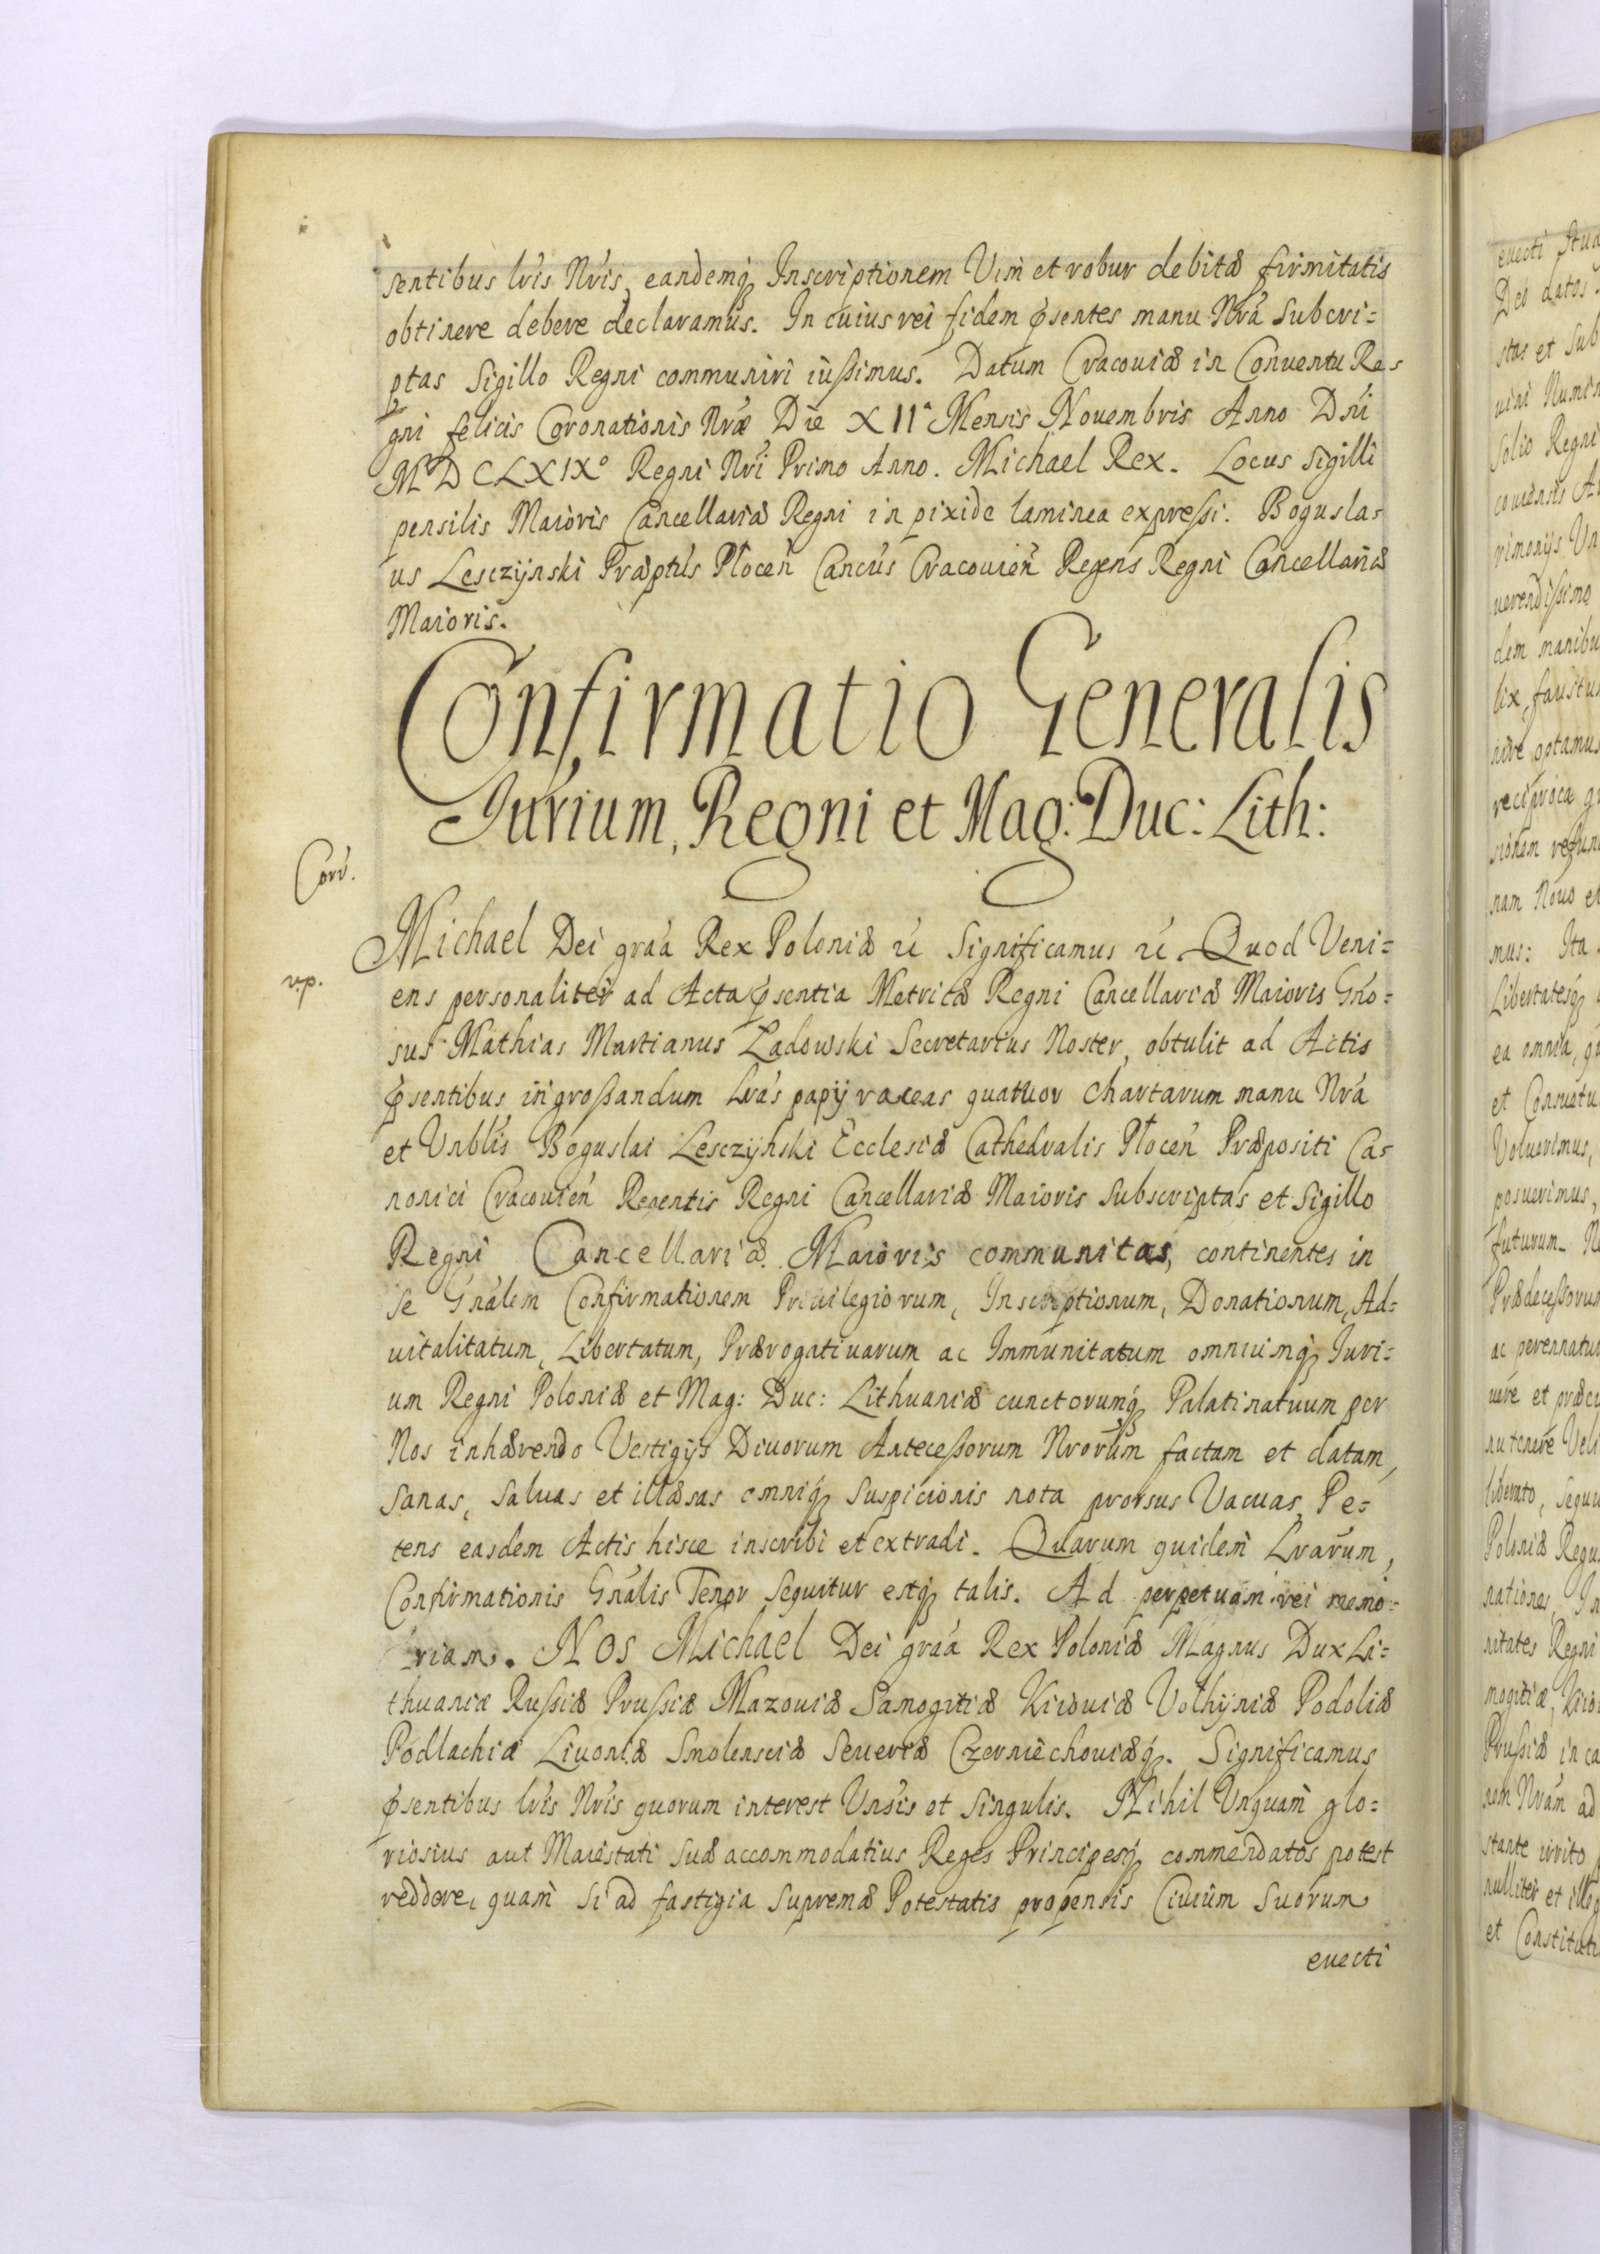 sentibus lris Nris, eandemq; Inscriptionem Vim et robur debitæ firmitatis
obtinere debere declaramus. In cuius rei fidem p̄sentes manu Nrá Subcri=
ptas Sigillo Regni communiri iußimus. Datum Cracouiæ in Conuentu Re=
gni felicis Coronationis Nræ Die XII^a Mensis Nouembris Anno Dni
M°DCLXIX° Regni Nri Primo Anno. Michael Rex. Locus Sigilli
pensilis Maioris Cancellariæ Regni in pixide laminea expreßi. Bogusla=
us Lesczÿnski Præptus Płocen Cancus Cracouien Regens Regni Cancellariæ
Maioris.
Confirmatio Generalis
Iurium, Regni et Mag: Duc: Lith:
Corr.
Michael Dei graá Rex Poloniæ rć Significamus rć. Quod Veni=
v.p.
ens personaliter ad Acta p̄sentia Metricæ Regni Cancellariæ Maioris Gno=
sus Mathias Martianus Ładowski Secretarius Noster, obtulit ad Actis
p̄sentibus ingroßandum Lrás papÿraceas quatuor chartarum manu Nrá
et Vnblis Boguslai Lesczÿnski Ecclesiæ Cathedralis Płocen Præpositi Ca=
nonici Cracouien Regentis Regni Cancellariæ Maioris subscriptas et Sigillo
Regni Cancellariæ Maioris communitas, continentes in
se Gnálem Confirmationem Priuilegiorum, Inscriptionum, Donationum, Ad=
uitalitatum, Libertatum, Prærogatiuarum ac Immunitatum omniumq; Iuri=
um Regni Poloniæ et Mag: Duc: Lithuaniæ cunctorumq; Palatinatuum per
Nos inhærendo Vestigÿs Diuorum Anteceßorum Nrorum factam et datam,
Sanas, saluas et illæsas omniq; suspicionis nota prorsus Vacuas, Pe=
tens easdem Actis hisce inscribi et extradi. Quarum quidem Lrarum,
Confirmationis Gnális Tenor Sequitur estq; talis. Ad perpetuam rei memo=
riam. Nos Michael Dei graá Rex Poloniæ Magnus Dux Li=
thuaniæ Rußiæ Prußiæ Mazouiæ Samogitiæ Kiiouiæ Volhÿniæ Podoliæ
Podlachiæ Liuoniæ Smolensciæ Seueriæ Czerniechouiæq;. Significamus
p̄sentibus lris Nris quorum interest Vnsis et singulis. Nihil Vnquam glo=
riosius aut Maiestati suæ accommodatius Reges Principesq; commendatos potest
reddere, quam si ad fastigia supremæ Potestatis propensis Ciuium suorum
euecti